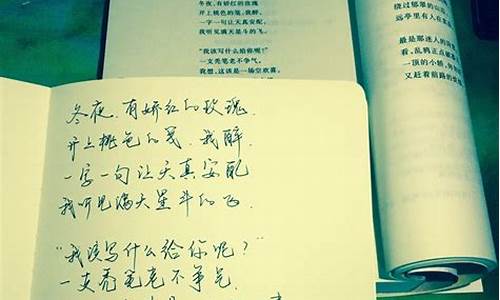 冬夜，有娇红的玫瑰
开上桃色的笺，我醉，
一字一句让天真安配，
我听见满天星斗的飞。
"我该写什么给你呢？"
一支秃笔老不争气，
我想，这该是一场空欢喜。
绕过郁翠的山
远亭里有人在
最是那迷人的
看，乱鸦正点
一顶的小轿，
又赶着前路的
冬夜，有娇红的玫瑰，
开上桃色的笺，我醉，
一字一句让天真安配
我听见满天星斗的飞，
"我该写什么给你呢？"
一支秃笔老不争气，